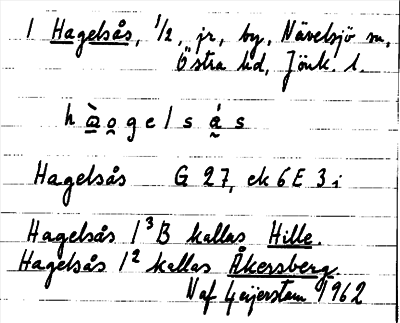 1 Hagelsås, 1/2, jr, by, Nävelsjö sn,
Östra hd, Jönk. l.
h à̱ o̰ g e l s á̰ s
Hagelsås G 27, ek 6E 3i
Hagelsås 1³B kallas Hille.
Hagelsås 1² kallas Åkersberg.
N af Geijerstam 1962